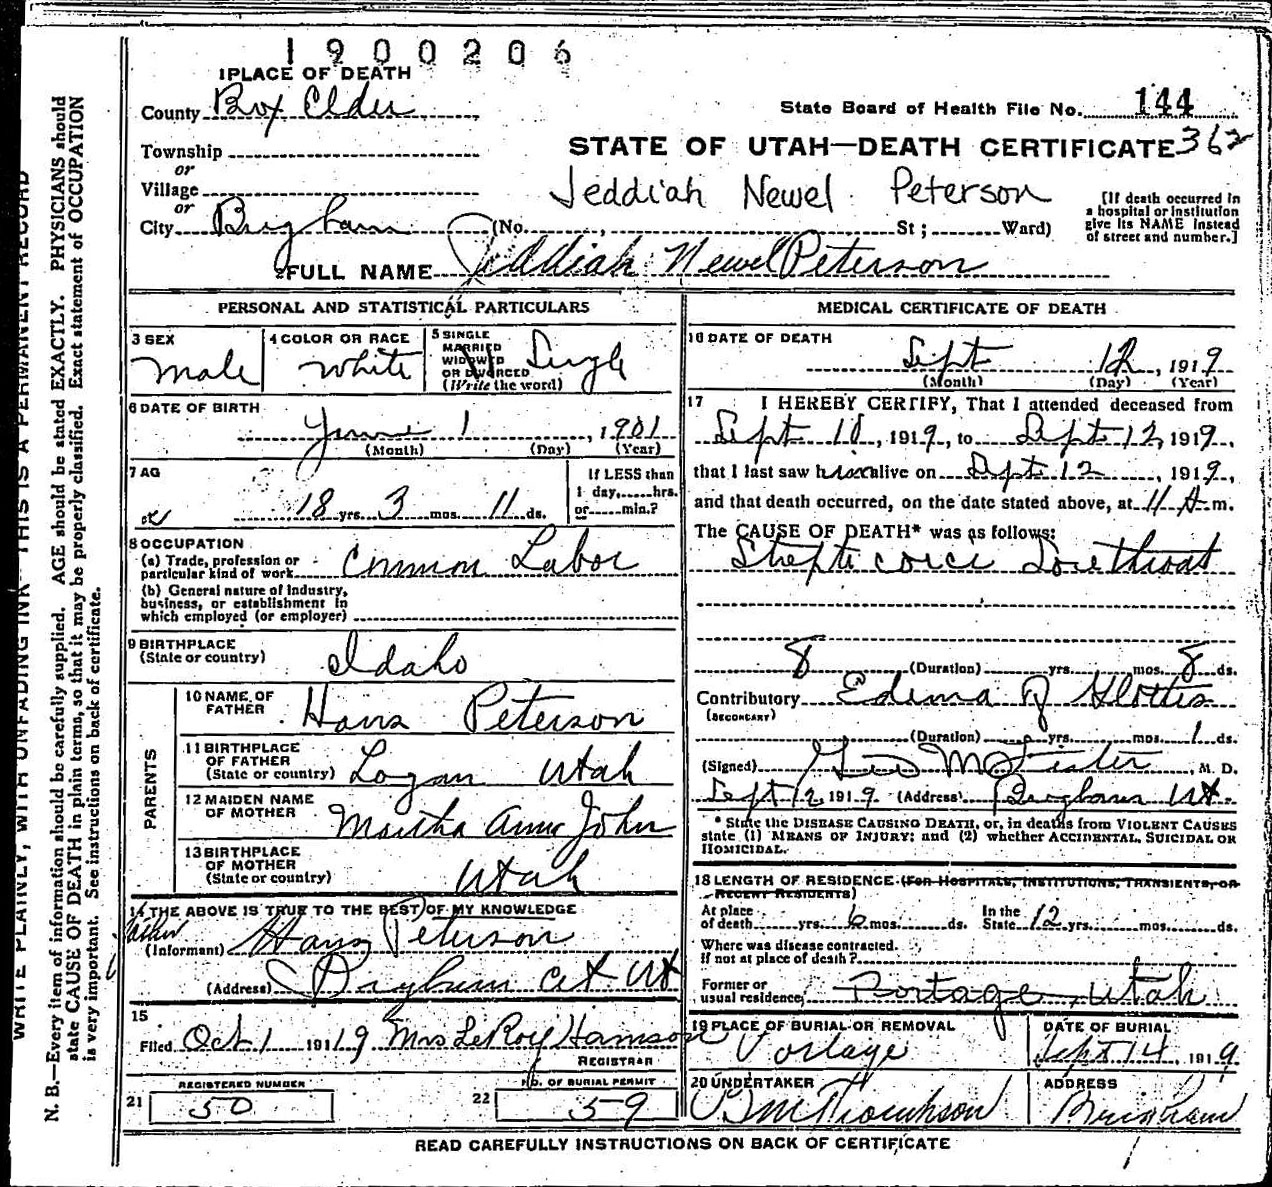 1900206
1 PLACE OF DEATH
County Box Elder
State Board of Health File No. 144
Township
or
STATE OF UTAH—DEATH CERTIFICATE 362
Village
or
Jeddiah Newel Peterson
City Brigham (No. , St ; Ward)
[If death occurred in
a hospital or institution
give its NAME instead
of street and number.]
2 FULL NAME Jeddiah Newel Peterson
PERSONAL AND STATISTICAL PARTICULARS
3 SEX
Male
4 COLOR OR RACE
White
5 SINGLE
MARRIED
WIDOWED
OR DIVORCED
(Write the word)
Single
6 DATE OF BIRTH
June 1, 1901
(Month) (Day) (Year)
7 AG
18 yrs. 3 mos. 11 ds.
If LESS than
1 day, hrs.
or min.?
8 OCCUPATION
(a) Trade, profession or
particular kind of work Common Labor
(b) General nature of industry,
business, or establishment in
which employed (or employer)
9 BIRTHPLACE
(State or country) Idaho
PARENTS
10 NAME OF
FATHER Hans Peterson
11 BIRTHPLACE
OF FATHER
(State or country) Logan Utah
12 MAIDEN NAME
OF MOTHER Martha Ann John
13 BIRTHPLACE
OF MOTHER
(State or country) Utah
14 THE ABOVE IS TRUE TO THE BEST OF MY KNOWLEDGE
(Informant) Hans Peterson
(Address) Brigham Ut
15
Filed Oct 1 1919 Mrs LeRoy
REGISTRAR
REGISTERED NUMBER
21 50
NO. OF BURIAL PERMIT
22 59
MEDICAL CERTIFICATE OF DEATH
16 DATE OF DEATH
Sept 12, 1919
(Month) (Day) (Year)
17 I HEREBY CERTIFY, That I attended deceased from
Sept 10, 1919, to Sept 12, 1919,
that I last saw him alive on Sept 12, 1919,
and that death occurred, on the date stated above, at 11 A m.
The CAUSE OF DEATH* was as follows:
Sore throat
8 (Duration) yrs. mos. 8 ds.
Contributory Edema of Glottis
(SECONDARY)
(Duration) yrs. mos. 1 ds.
(Signed) M. D.
Sept 12, 1919 (Address) Brigham Ut.
* State the DISEASE CAUSING DEATH, or, in deaths from VIOLENT CAUSES
state (1) MEANS OF INJURY; and (2) whether ACCIDENTAL, SUICIDAL OR
HOMICIDAL.
18 LENGTH OF RESIDENCE (FOR HOSPITALS, INSTITUTIONS, TRANSIENTS, OR
RECENT RESIDENTS)
At place
of death yrs. 6 mos. ds. In the
State 12 yrs. mos. ds.
Where was disease contracted.
If not at place of death?
Former or
usual residence, Portage, Utah
19 PLACE OF BURIAL OR REMOVAL
Portage
DATE OF BURIAL
Sept 14, 1919
20 UNDERTAKER
ADDRESS
Brigham
READ CAREFULLY INSTRUCTIONS ON BACK OF CERTIFICATE
WRITE PLAINLY, WITH UNFADING INK—THIS IS A PERMANENT RECORD
N. B.—Every item of information should be carefully supplied. AGE should be stated EXACTLY. PHYSICIANS should
state CAUSE OF DEATH in plain terms, so that it may be properly classified. Exact statement of OCCUPATION
is very important. See instructions on back of certificate.